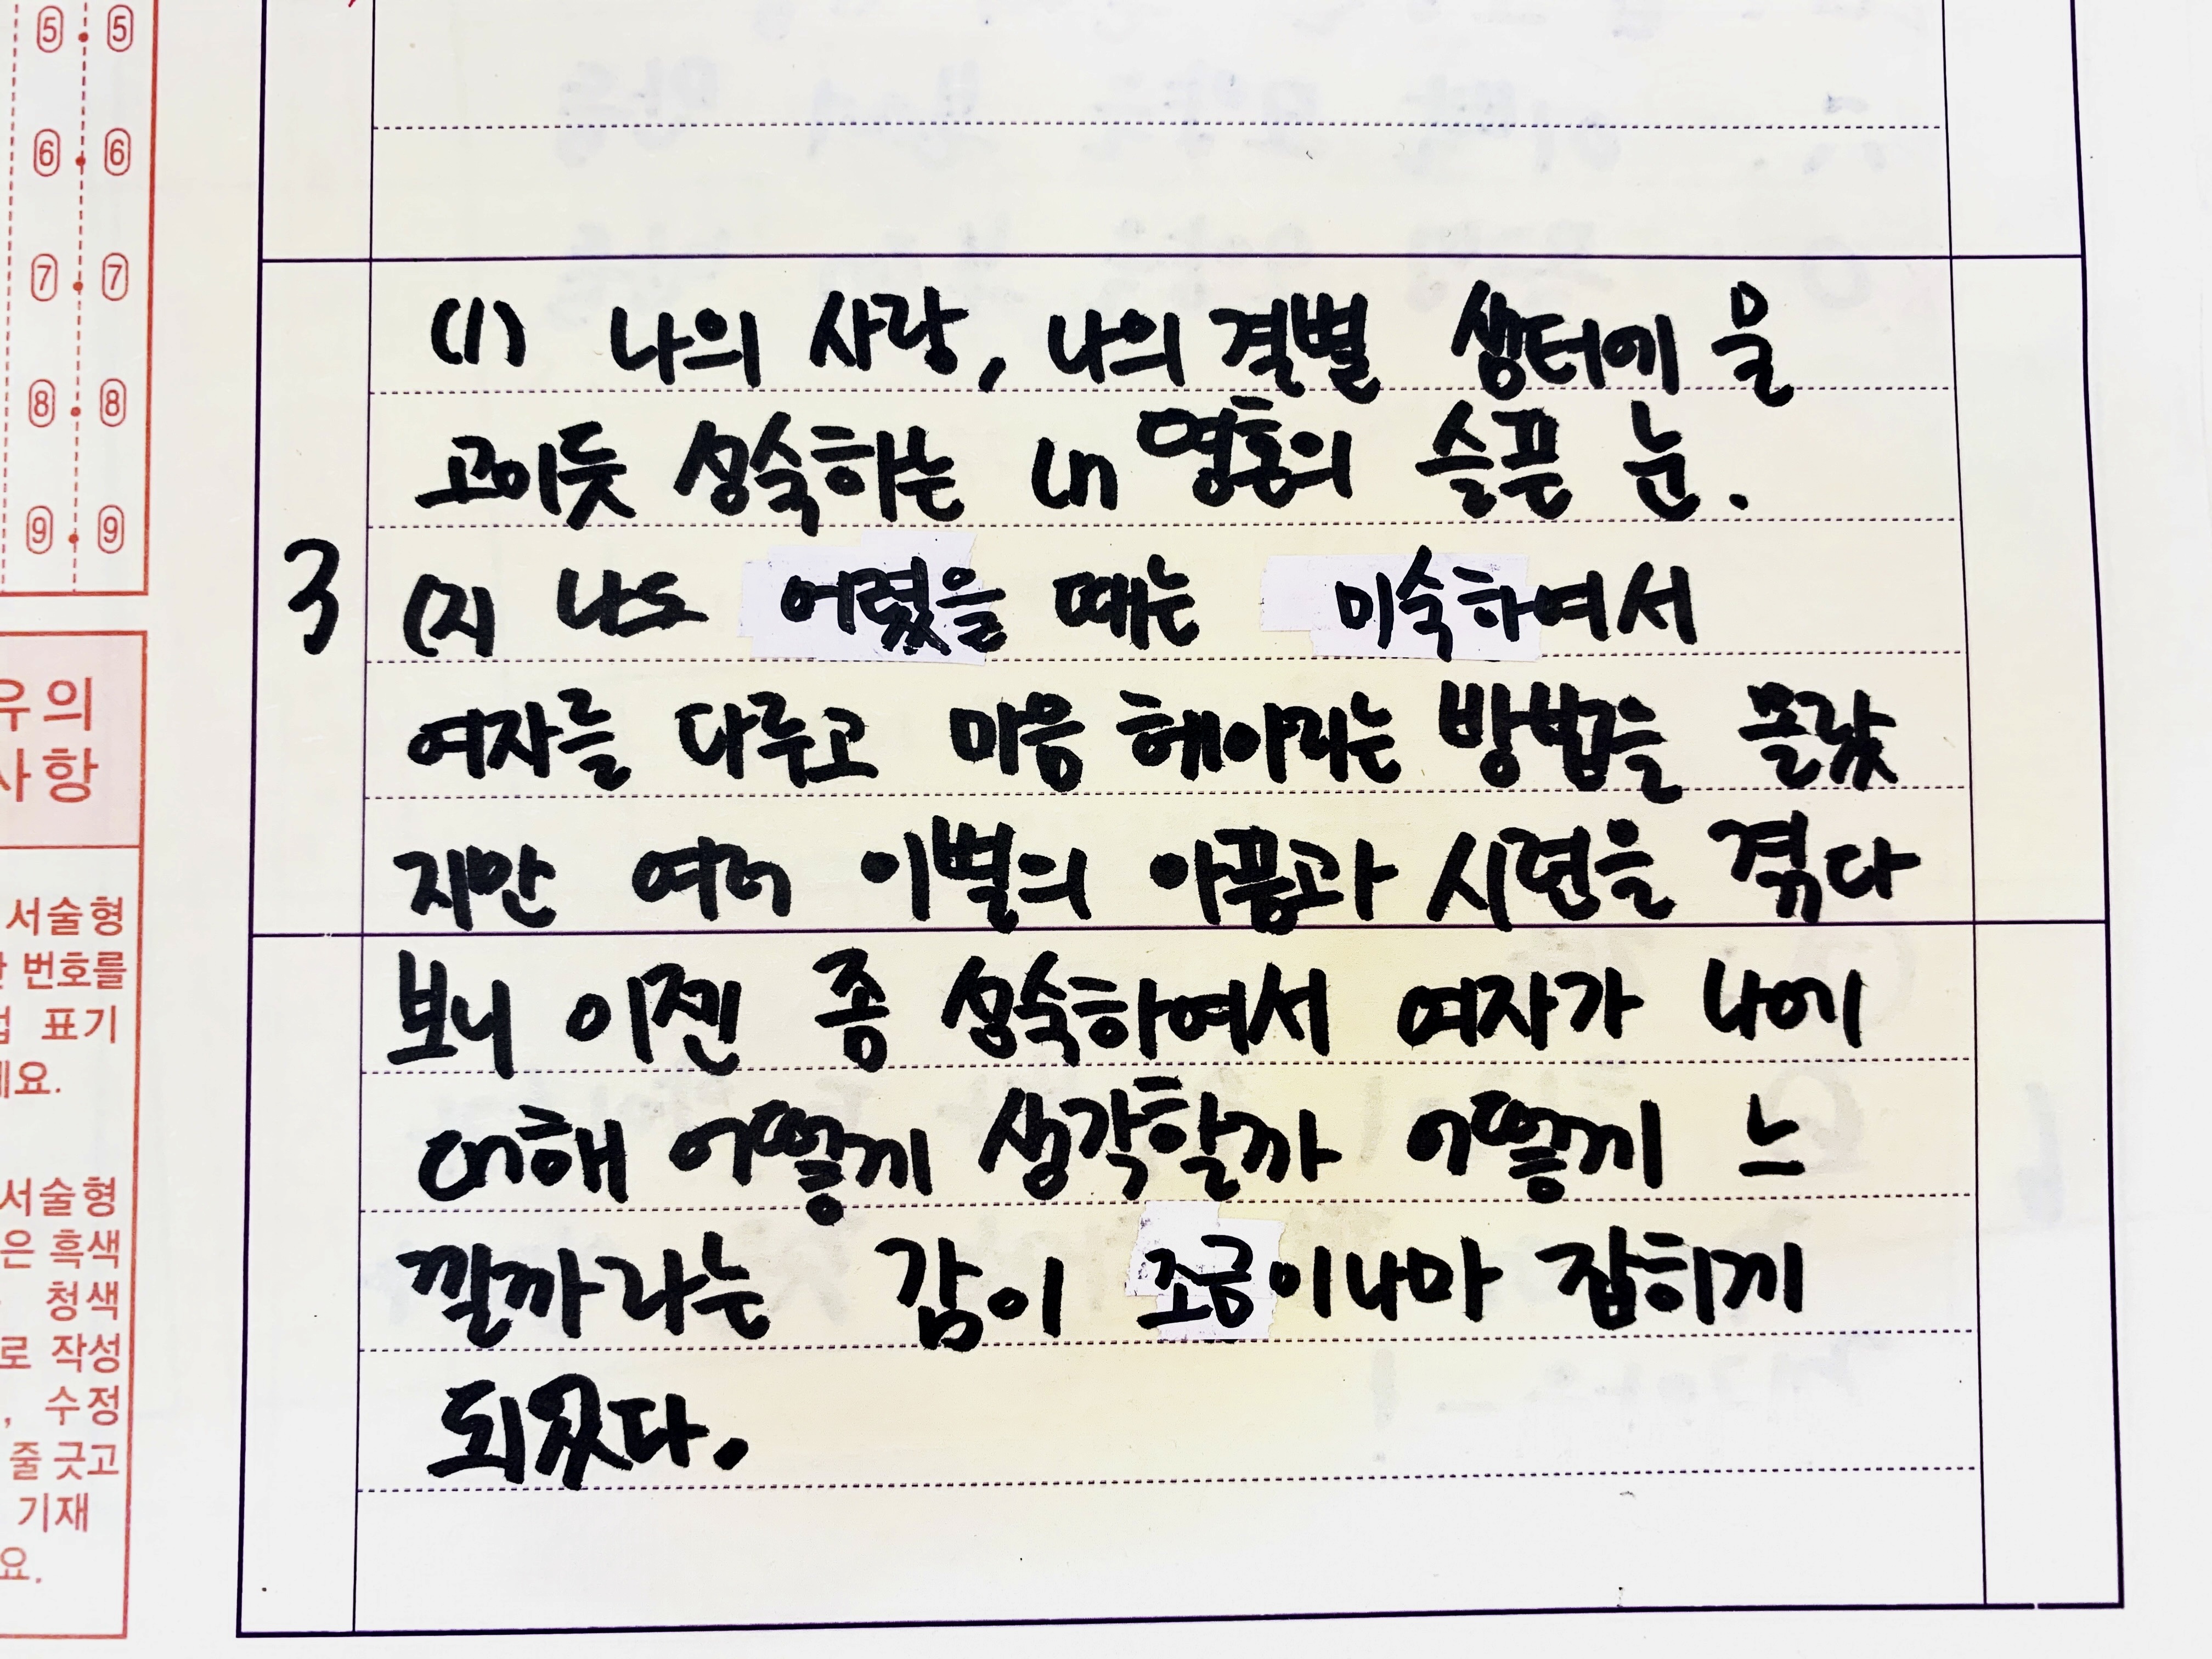 5 5
6 6
7 7
8 8
9 9
유의
사항
서술형
번호를
표기
요.
서술형
은 흑색
청색
로 작성
, 수정
줄 긋고
기재
요.
3
(1) 나의 사랑, 나의 결별 샘터에 물
고이듯 성숙하는 내 영혼의 슬픈 눈.
(2) 나도 어렸을 때는 미숙하여서
여자를 다루고 마음 헤아리는 방법을 몰랐
지만 여러 이별의 아픔과 시련을 겪다
보니 이젠 좀 성숙하여서 여자가 나에
대해 어떻게 생각할까 어떻게 느
낄까라는 감이 조금이나마 잡히게
되었다.